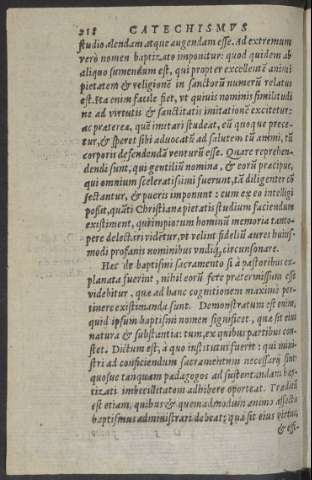 218 CATECHISMVS
studio alendam atque augendam esse. Ad extremum
verò nomen baptizato imponitur: quod quidem ab
aliquo sumendum est, qui propter excellentē animi
pietatem & religionē in sanctorū numerū relatus
est. Ita enim facile fiet, vt quiuis nominis similitudi
ne ad virtutis & sanctitatis imitationē excitetur:
ac praterea, quē imitari studeat, eū quoque prece-
tur, & speret sibi aduocatū ad salutem tū animi, tū
corporis defendendā venturū esse. Quare reprehen-
dendi sunt, qui gentiliū nomina, & eorū præcipue,
qui omnium sceleratissimi fuerunt, tā diligenter cō
sectantur, & pueris imponunt: cum ex eo intelligi
possit, quāti Christianæ pietatis studium faciendum
existiment, qui impiorum hominū memoria tanto-
pere delectari videtur, vt velint fideliū aures huius-
modi profanis nominibus vndiq; circunsonare.
Hæc de baptismi sacramento si à pastoribus ex-
planata fuerint, nihil eorū fere prætermissum esse
videbitur, quæ ad hanc cognitionem maximè per-
tinere existimanda sunt. Demonstratum est enim,
quid ipsum baptismi nomen significet, quæ sit eius
natura & substantia: tum, ex quibus partibus con-
stet. Dictum est, à quo institutus fuerit: qui mini-
stri ad conficiendum sacramentum necessarij sint:
quosue tanquam pædagogos ad sustentandam bap-
tizati imbecillitatem adhibere oporteat. Traditū
est etiam, quibus & quemadmodum animo affectis
baptismus administrari debeat: quæ sit eius virtus,
& effi-